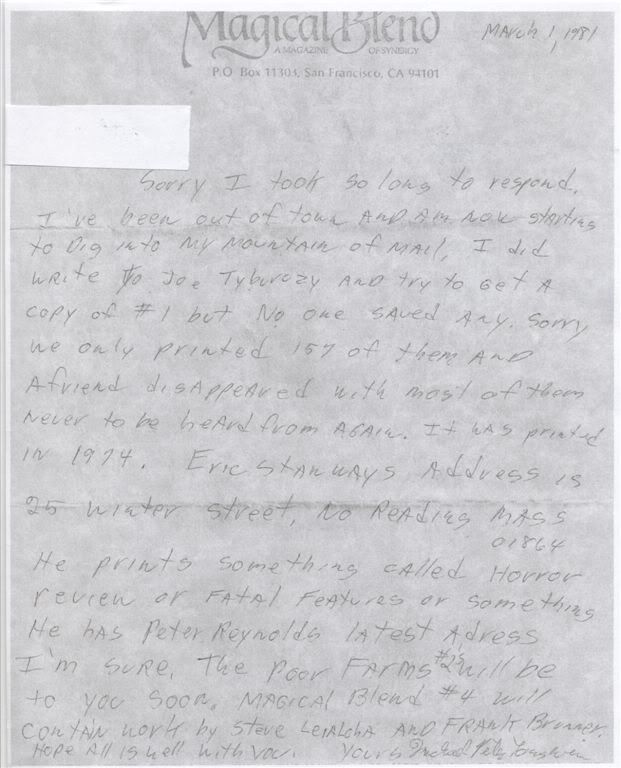 Magical Blend
A MAGAZINE OF SYNERGY
P.O. Box 11303, San Francisco, CA 94101
MARCH 1, 1981
Sorry I took so long to respond.
I've been out of town AND Am now starting
to Dig into My Mountain of MAil, I did
write to Joe Tyburczy AND try to Get A
copy of #1 but No one SAved Any. Sorry
we only printed 157 of them AND
A friend disAppeAred with most of them
never to be heArd from AgAin. It wAs printed
in 1974. Eric StAnwAys Address is
25 winter street, No ReAding MASS
01864
He prints something cAlled Horror
review or FAtAl FeAtures or something
He hAs Peter Reynolds lAtest Adress
I'm sure. The Poor FArms #2s will be
to you soon. MAGICAl Blend #4 will
contAin work by Steve LeiAlohA AND FRANK Brunner.
Hope All is well with you. Yours Michael Peter